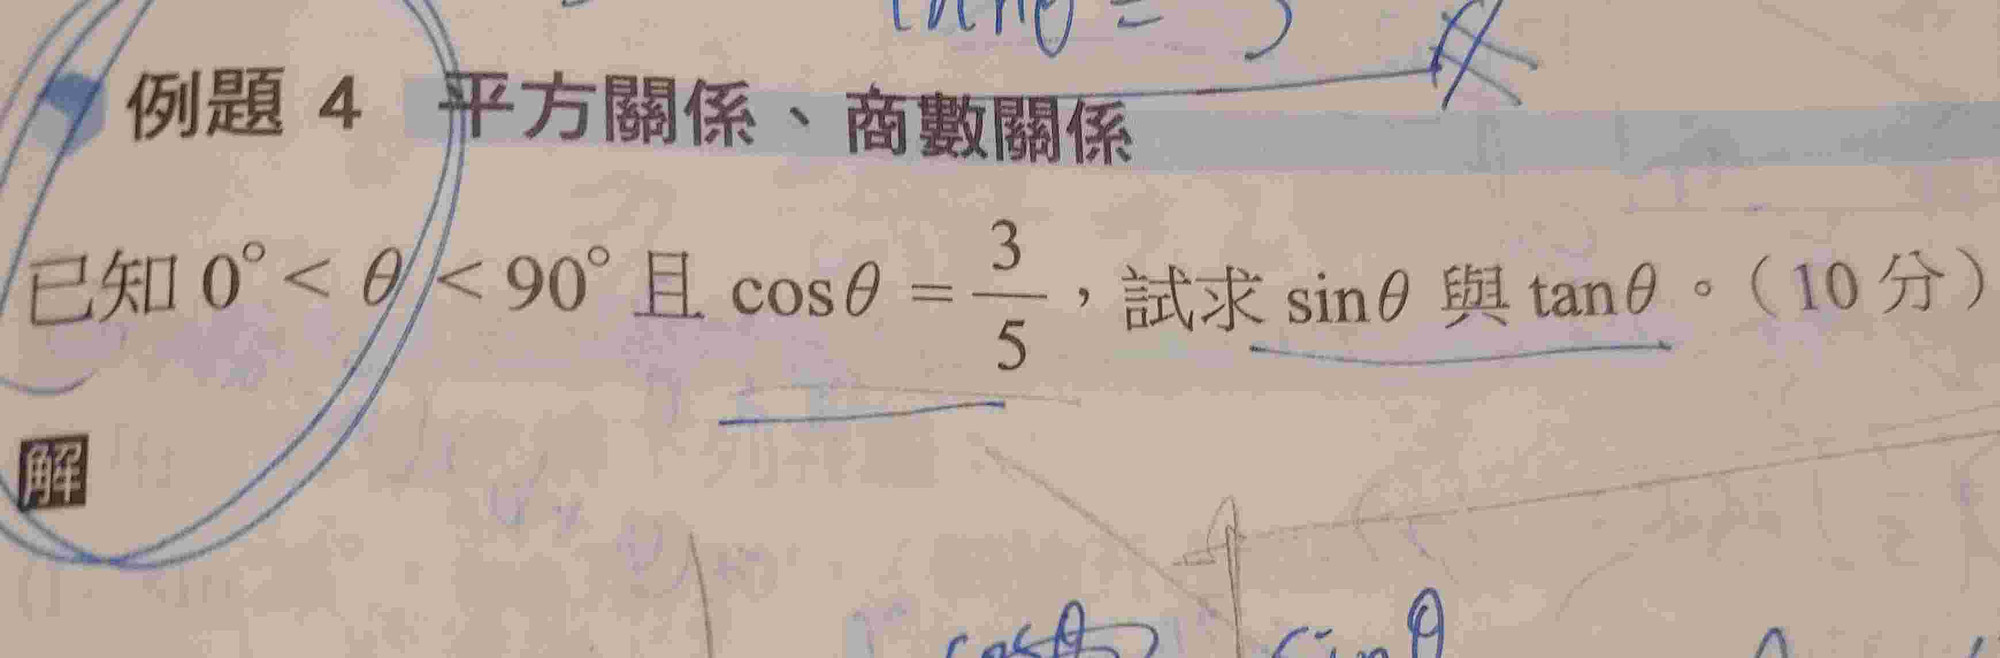 tanθ =
例題 4 平方關係、商數關係
已知 0° < θ < 90° 且 cosθ = 3/5，試求 sinθ 與 tanθ。(10 分)
解
cosθ sinθ